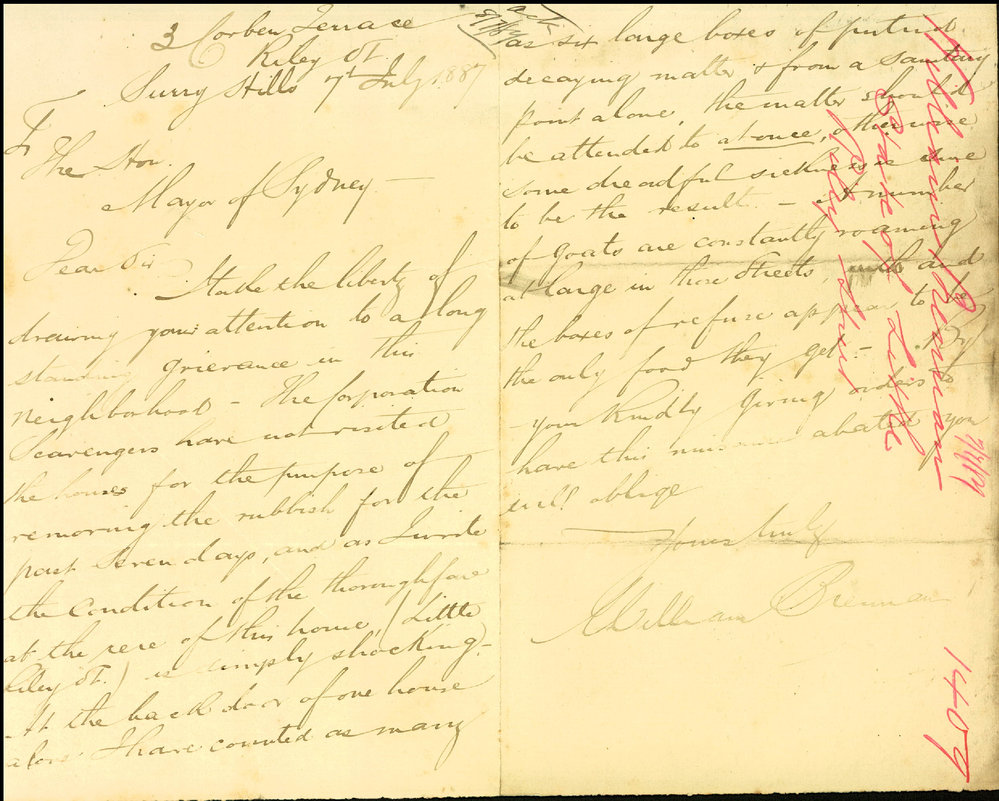 3 Corben Terrace
Riley St.
Surry Hills 7th July 1887
To
The Hon.
Mayor of Sydney —
Dear Sir
I take the liberty of
drawing your attention to a long
standing grievance in this
neighborhood — The Corporation
Scavengers have not visited
the houses for the purpose of
removing the rubbish for the
past seven days, and as I write
the condition of the thoroughfare
at the rere of this house (Little
Riley St.) is simply shocking. —
At the back door of one house
alone I have counted as many
ack
as six large boxes of putrid
decaying matter & from a sanitary
point alone, the matter should
be attended to at once, otherwise
some dreadful sickness is sure
to be the result. — A number
of Goats are constantly roaming
at large in these streets, and
the boxes of refuse appear to be
the only food they get. — By
your kindly giving orders to
have this nuisance abated you
will oblige
Yours truly
William Brennan
William Brennan
State of Little
Riley Street
1409